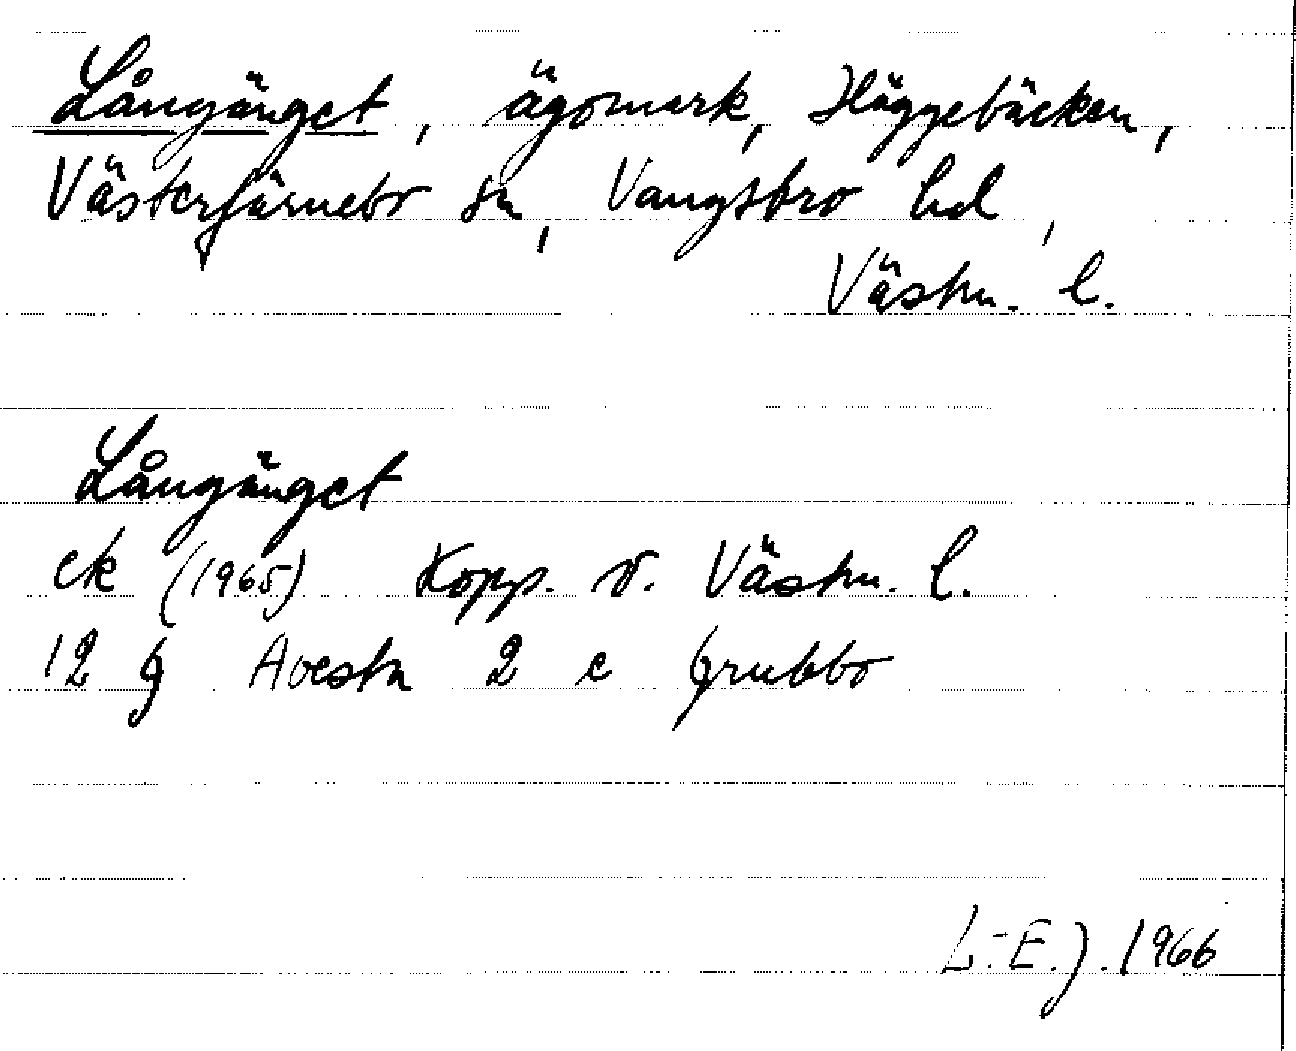 Långänget, ägomark, Häggebäcken,
Västerfärnebo sn, Vangsbro hd,
Västm. l.
Långänget
ek (1965) Kopp. o. Västm. l.
12 G Avesta 2 c Grubbo
L.-E.J. 1966